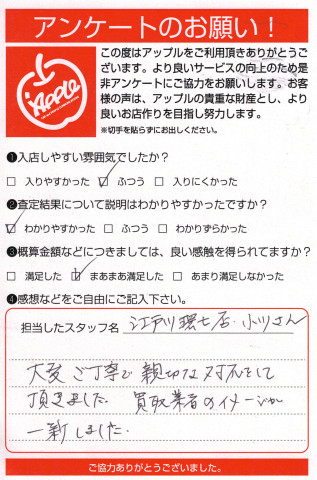 アンケートのお願い！
Apple
この度はアップルをご利用頂きありがとうご
ざいます。より良いサービスの向上のため是
非アンケートにご協力をお願いします。お客
様の声は、アップルの貴重な財産とし、より
良いお店作りを目指し努力します。
※切手を貼らずにお出しください。
❶入店しやすい雰囲気でしたか？
□ 入りやすかった ☑ ふつう □ 入りにくかった
❷査定結果について説明はわかりやすかったですか？
☑ わかりやすかった □ ふつう □ わかりずらかった
❸概算金額などにつきましては、良い感触を得られてますか？
□ 満足した ☑ まあまあ満足した □ あまり満足しなかった
❹感想などをご自由にご記入下さい。
担当したスタッフ名 江戸川環七店・小川さん
大変ご丁寧で親切な対応をして
頂きました。買取業者のイメージが
一新しました。
ご協力ありがとうございました。